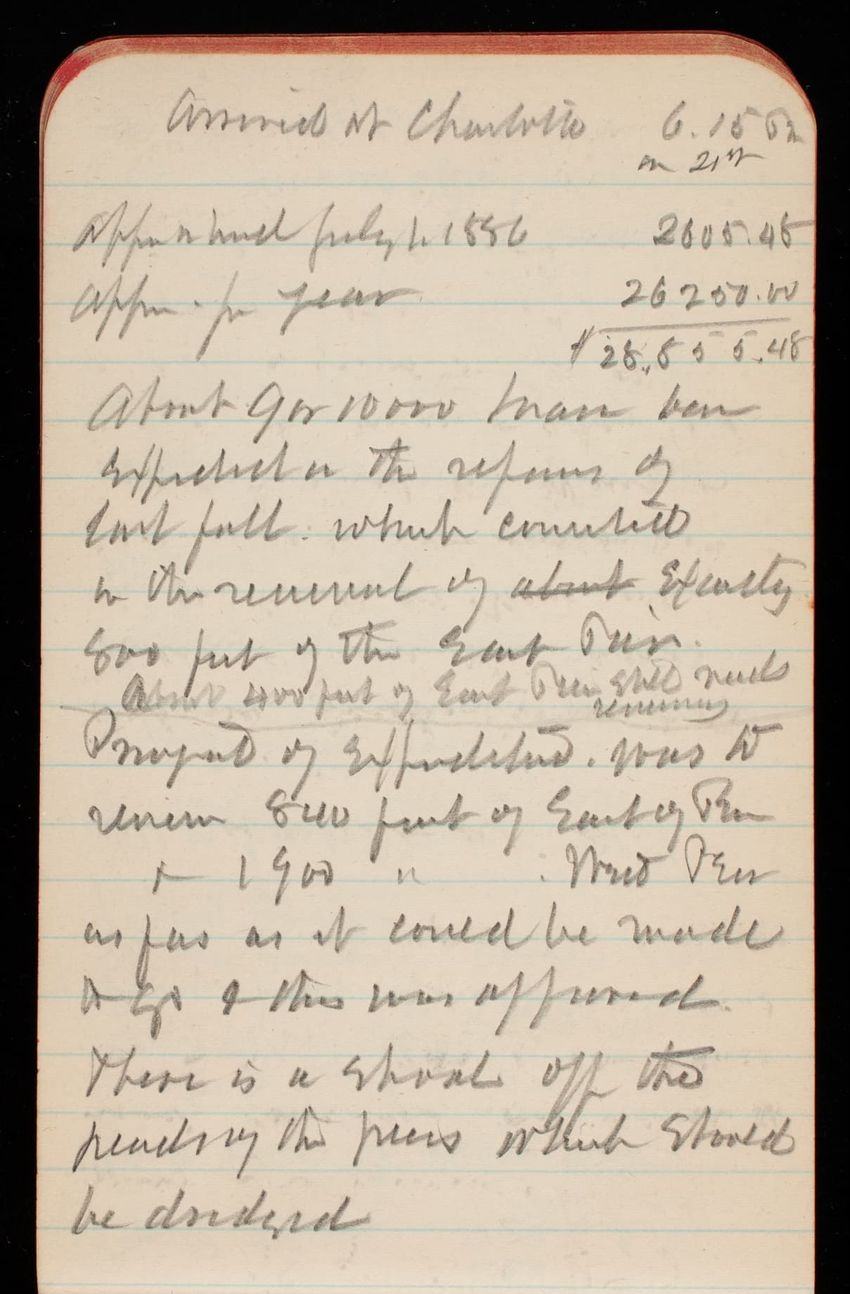 Arrived at Charlotte 6.15 Pm
on 21st
Appn on hand July 1. 1886 2605.48
Appn. for year 26 250.00
$ 28,855.48
About 9 or 10000 have been
Expended in the repairs of
last fall. which consisted
in the renewal of about Exactly
800 feet of the East Pier.
About 400 feet of East Pier Still needs
renewing
Project of Expenditure. was to
renew 840 feet of East Pier
+ 1900 " . West Pier
as far as it could be made
to go & this was approved.
There is a Shoal off the
heads of the piers which Should
be dredged